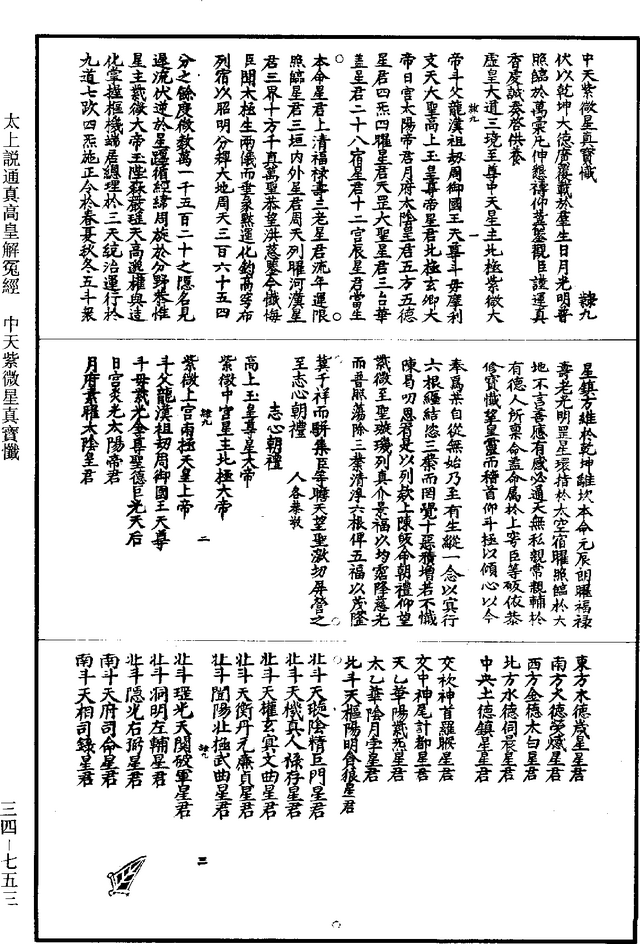 中天紫微星真寶懺
隸九
伏以乾坤大德廣覆載於羣生日月光明普
照臨於萬彙凡伸懇禱仰冀鑒觀臣謹運真
香虔誠奏啓供養
虛皇大道三境至尊中天星主北極紫微大
帝斗父龍漢祖劫周御國王天尊斗母摩利
支天大聖高上玉皇尊帝星君北極玄卿大
帝日宫太陽帝君月府太陰皇君五方五德
星君四炁四曜星君天罡大聖星君三台華
蓋星君二十八宿星君十二宫辰星君當生
本命星君上清福禄壽三老星君流年運限
照臨星君三垣内外星君周天列曜河漢星
君三界十方千真萬聖恭望洪慈鑒今懺悔
臣聞太極生兩儀而垂象懸運化鈞高穹布
列宿以昭明分輝大地周天三百六十五四
分之餘度微数萬一千五百二十之隱名見
遲流伏逆於星躔循經緯周旋於分野恭惟
星主紫微大帝玉陛森嚴瑶天高邈權與造
化掌握樞機端居總理於三天統治運行於
九道七政四炁施正令於春夏秋冬五斗衆
星鎮方維於乾坤離坎本命元辰朗曜福禄
壽老光明罡星環指於太空宿曜照臨於大
地不言善應有感必通天無私親常親輔於
有德人所稟命盖命屬於上穹臣等皈依恭
修寶懺望皇靈而稽首仰斗極以傾心以今
奉爲某自從無始乃至有生縱一念以寘行
六根纏結恣三業而罔覺十惡積增若不懺
陳曷叨恩宥是以列款上陳皈命朝禮仰望
紫微至聖璇璣列真介景福以均霑降慈光
而普照蕩除三業清淨六根俾五福以茂隆
冀千祥而駢集臣等瞻天望聖激切屏營之
至志心朝禮 人各恭敬
志心朝禮
高上玉皇尊星大帝
紫微中宫星主北極大帝
紫微上宫南極天皇上帝
斗父龍漢祖劫周御國王天尊
斗母紫光金尊聖德巨光天后
日宫炎光太陽帝君
月府素曜太陰皇君
東方木德歲星星君
南方火德熒惑星君
西方金德太白星君
北方水德伺晨星君
中央土德鎮星星君
交初神首羅睺星君
交中神尾計都星君
天乙華陽紫炁星君
太乙華陰月孛星君
北斗天樞陽明貪狼星君
北斗天璇陰精巨門星君
北斗天機真人禄存星君
北斗天權玄冥文曲星君
北斗天衡丹元廉貞星君
北斗闓陽北極武曲星君
北斗瑶光天關破軍星君
北斗洞明左輔星君
北斗隱光右弼星君
南斗天府司命星君
南斗天相司錄星君
隸九 一
隸九 二
隸九 三
太上説通真高皇解冤經 中天紫微星真寶懺
三四—七五三